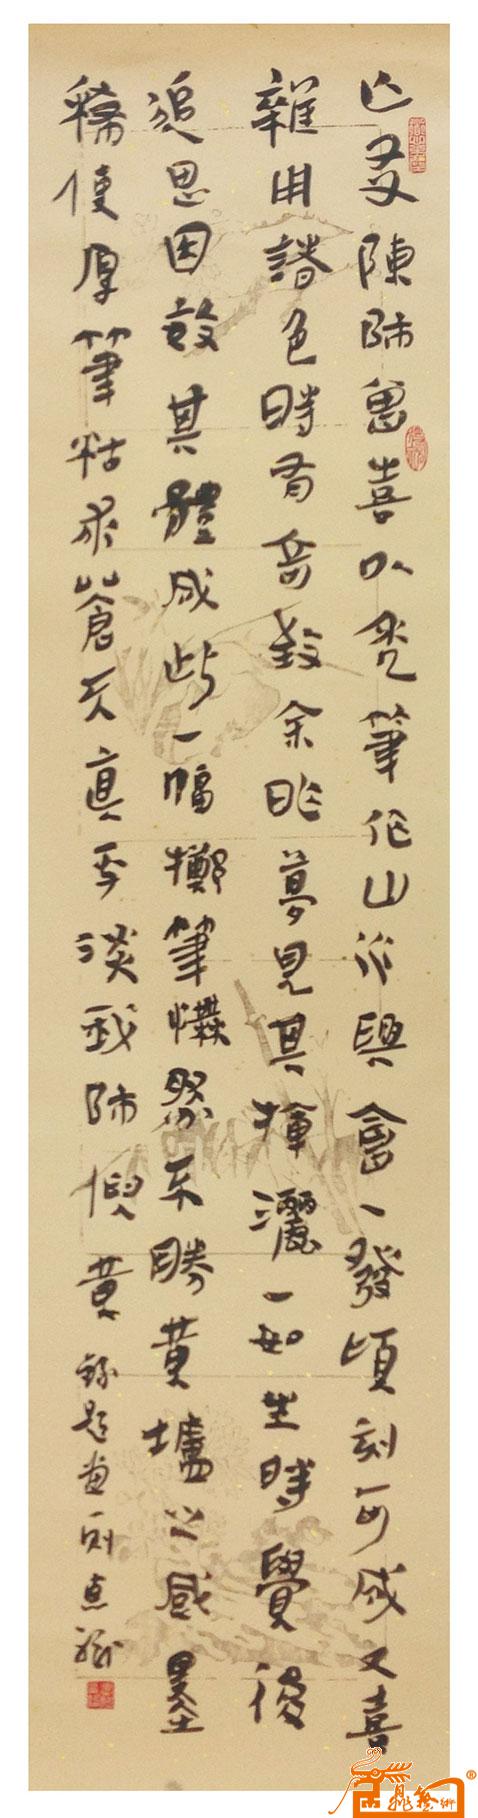 亡友陳師曾喜以禿筆作山水興會一發頃刻可成又喜
雜用諸色時有奇致余昨夢見其揮灑一如生時覺後
追思因效其體成此一幅擲筆惘然不勝黃壚之感墨
稀便厚筆枯求蒼天真平淡我師倪黃 錄題畫一則